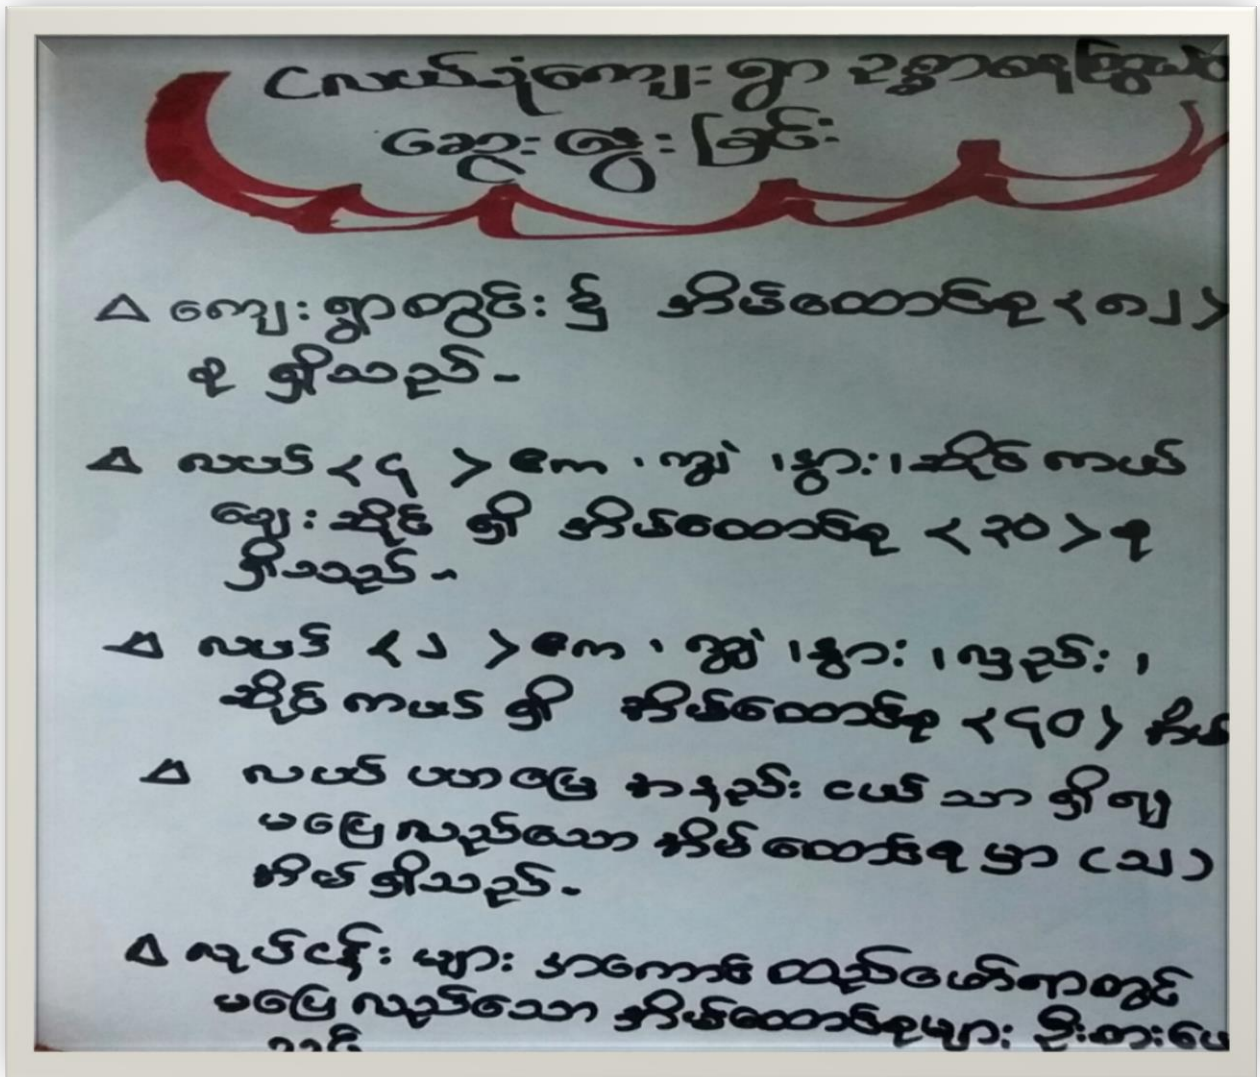 လယ်သုံးကျေးရွာ ဥစ္စာဓနကြွယ်ဝ
ဆွေးနွေးခြင်း
Δ ကျေးရွာတွင်း၌ အိမ်ထောင်စု <၈၂>
စု ရှိသည်-
Δ လယ် <၄> ဧက ၊ ကျွဲ ၊နွား၊ဆိုင်ကယ်
ဈေးဆိုင် ရှိ အိမ်ထောင်စု <၃၀> စု
ရှိသည်-
Δ လယ် <၂> ဧက ၊ ကျွဲ ၊နွား ၊လှည်း ၊
ဆိုင်ကယ် ရှိ အိမ်ထောင်စု <၄၀> အိမ်
Δ လယ် ယာမြေ အနည်း ငယ် သာ ရှိ၍
မပြေလည်သော အိမ်ထောင်စု မှာ (၁၂)
အိမ်ရှိသည်-
Δ လုပ်ငန်း များ အကောင် ထည်ဖော်ရာတွင်
မပြေလည်သော အိမ်ထောင်စုများ ဦးစားပေ